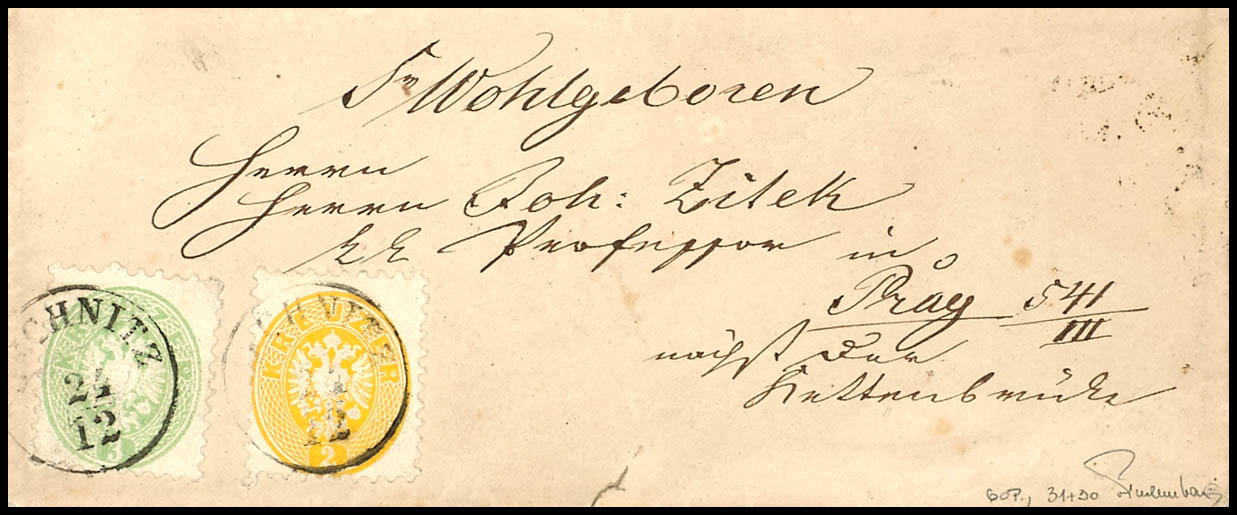 Sr Wohlgeboren
Herrn
Herrn Joh: Zitek
k k Professor in
Prag 541
III
nächst der
Kettenbrücke
CHNITZ
24
12
KREUZER
3
CHNITZ
12
KREUZER
2
31+30